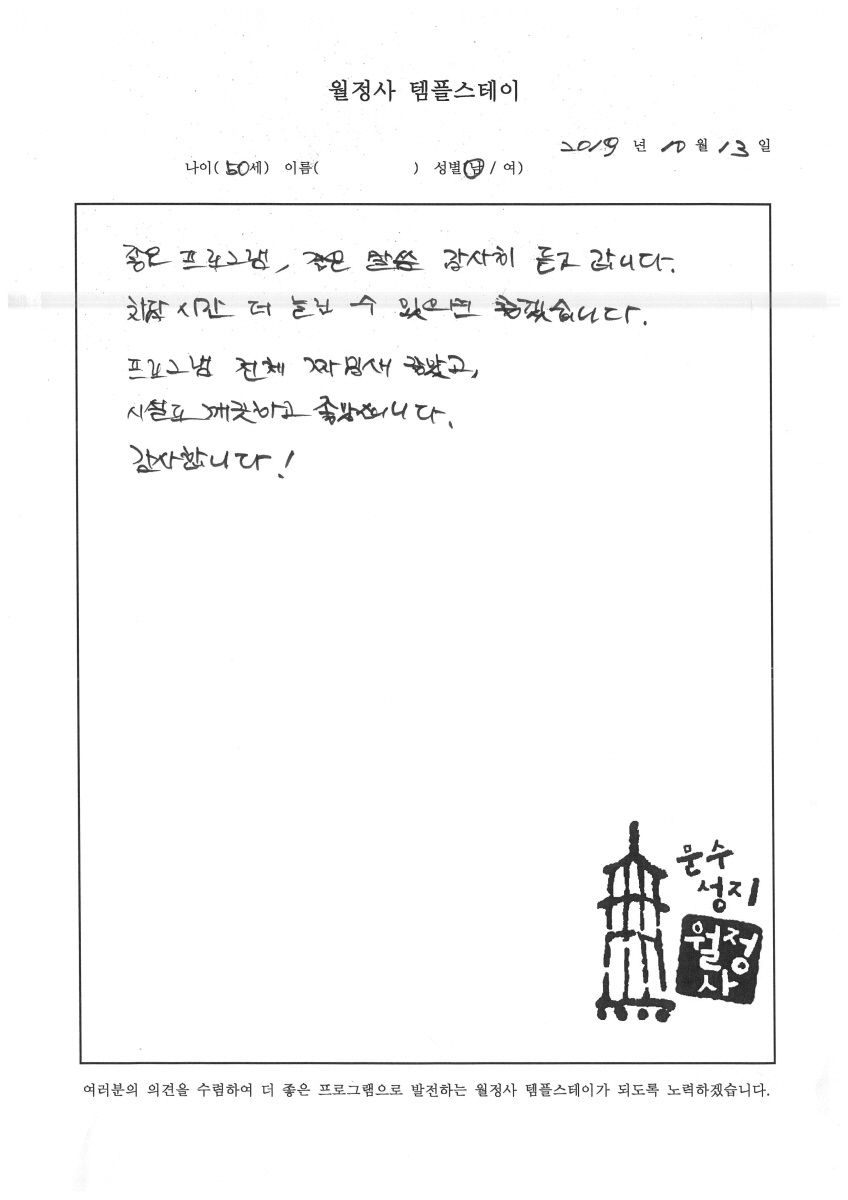 월정사 템플스테이
2019 년 10 월 13 일
나이( 50세) 이름( ) 성별(남 / 여)
좋은 프로그램, 좋은 말씀 감사히 듣고 갑니다.
차담 시간 더 늘릴 수 있으면 좋겠습니다.
프로그램 전체 짜임새 좋았고,
시설도 깨끗하고 좋았습니다.
감사합니다!
문수
성지
월정
사
여러분의 의견을 수렴하여 더 좋은 프로그램으로 발전하는 월정사 템플스테이가 되도록 노력하겠습니다.